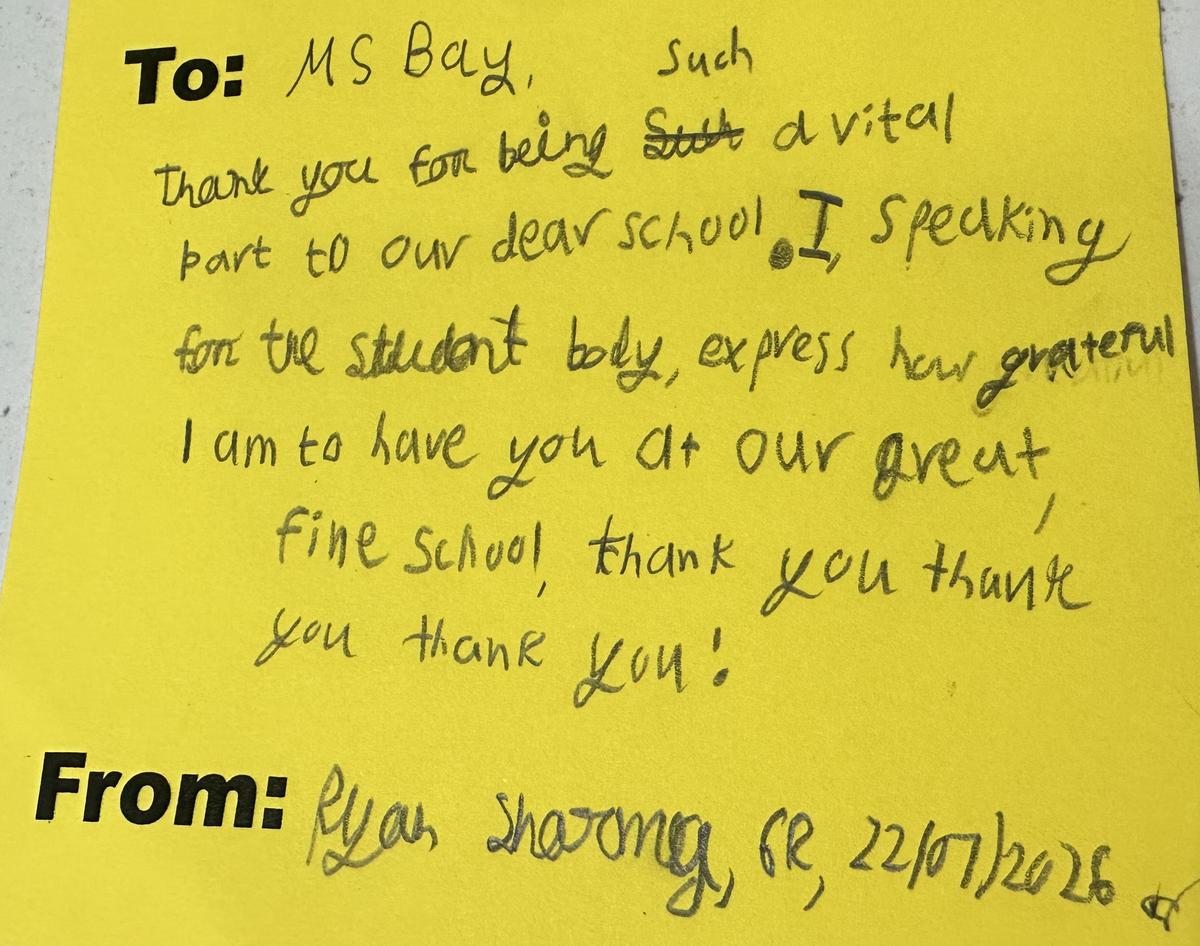 To: MS Bay,
such
thank you for being such a vital
part to our dear school. I, speaking
for the student body, express how grateful
I am to have you at our great,
fine school, thank you thank
you thank you!
From: Ryan Sharma, 6R, 22/07/2026